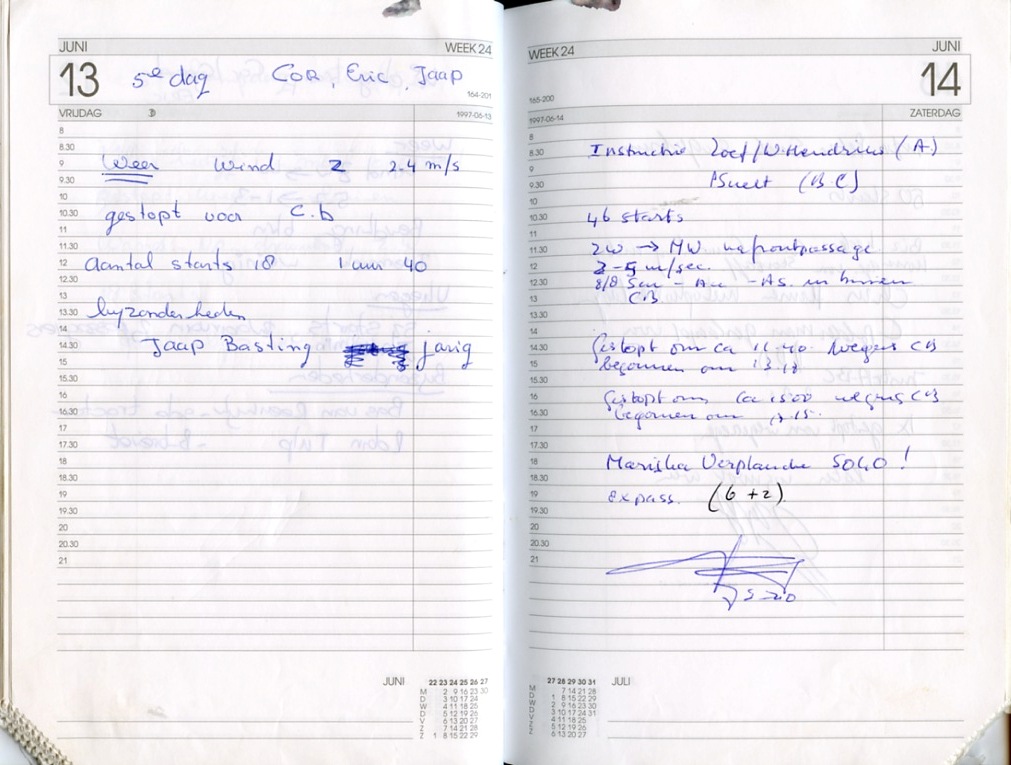 JUNI WEEK 24
13 5e dag COR, Eric, Jaap
164-201
VRIJDAG 1997-06-13
8
8.30
9 Weer Wind Z 2.4 m/s
9.30
10
10.30 gestopt voor C.b
11
11.30
12 Aantal starts 18 1 uur 40
12.30
13
13.30 bijzonderheden
14
14.30 Jaap Basting jarig
15
15.30
16
16.30
17
17.30
18
18.30
19
19.30
20
20.30
21
JUNI 22 23 24 25 26 27
M 2 9 16 23 30
D 3 10 17 24
W 4 11 18 25
D 5 12 19 26
V 6 13 20 27
Z 7 14 21 28
Z 1 8 15 22 29
WEEK 24 JUNI
14
165-200
1997-06-14 ZATERDAG
8
8.30 Instructie (A)
9
9.30 (B C)
10
10.30 46 starts
11
11.30 ZW → NW na frontpassage
12 3-5 m/sec.
12.30 8/8
13 CB
13.30
14
14.30 Gestopt om ca 11.40 wegens CB
15 begonnen om 13.18
15.30
16 Gestopt om ca 15.00 wegens CB
16.30 begonnen om 17.15.
17
17.30
18 Mariska Verplancke SOLO!
18.30
19 expass. (6 + 2)
19.30
20
20.30
21
27 28 29 30 31 JULI
M 7 14 21 28
D 1 8 15 22 29
W 2 9 16 23 30
D 3 10 17 24 31
V 4 11 18 25
Z 5 12 19 26
Z 6 13 20 27